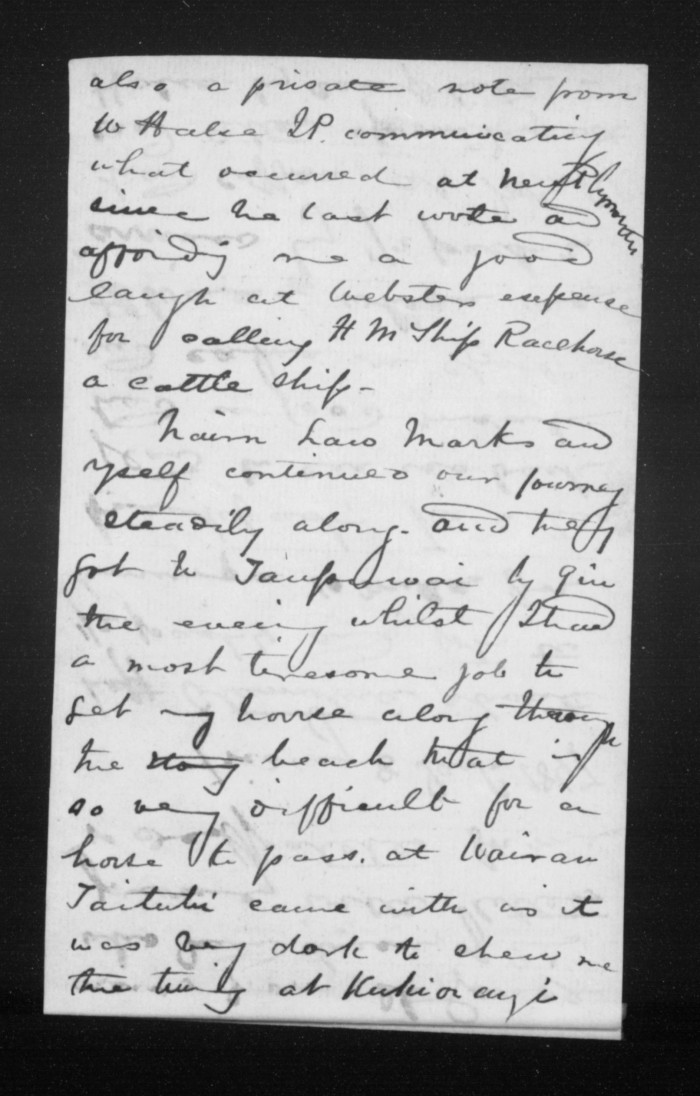 also a private note from
W Halse J.P. communicating
what occurred at New Plymouth
since he last wrote and
affording me a good
laugh at Websters expense
for calling H M Ship Racehorse
a cattle ship -
Nairn Law Marks and
myself continued our journey
steadily along. and they
got to by 9 in
the evening whilst I had
a most tiresome job to
get my horse along through
the stony beach that is
so very difficult for a
horse to pass. at Wairau
Taituhi came with us it
was very dark to shew me
the turning at